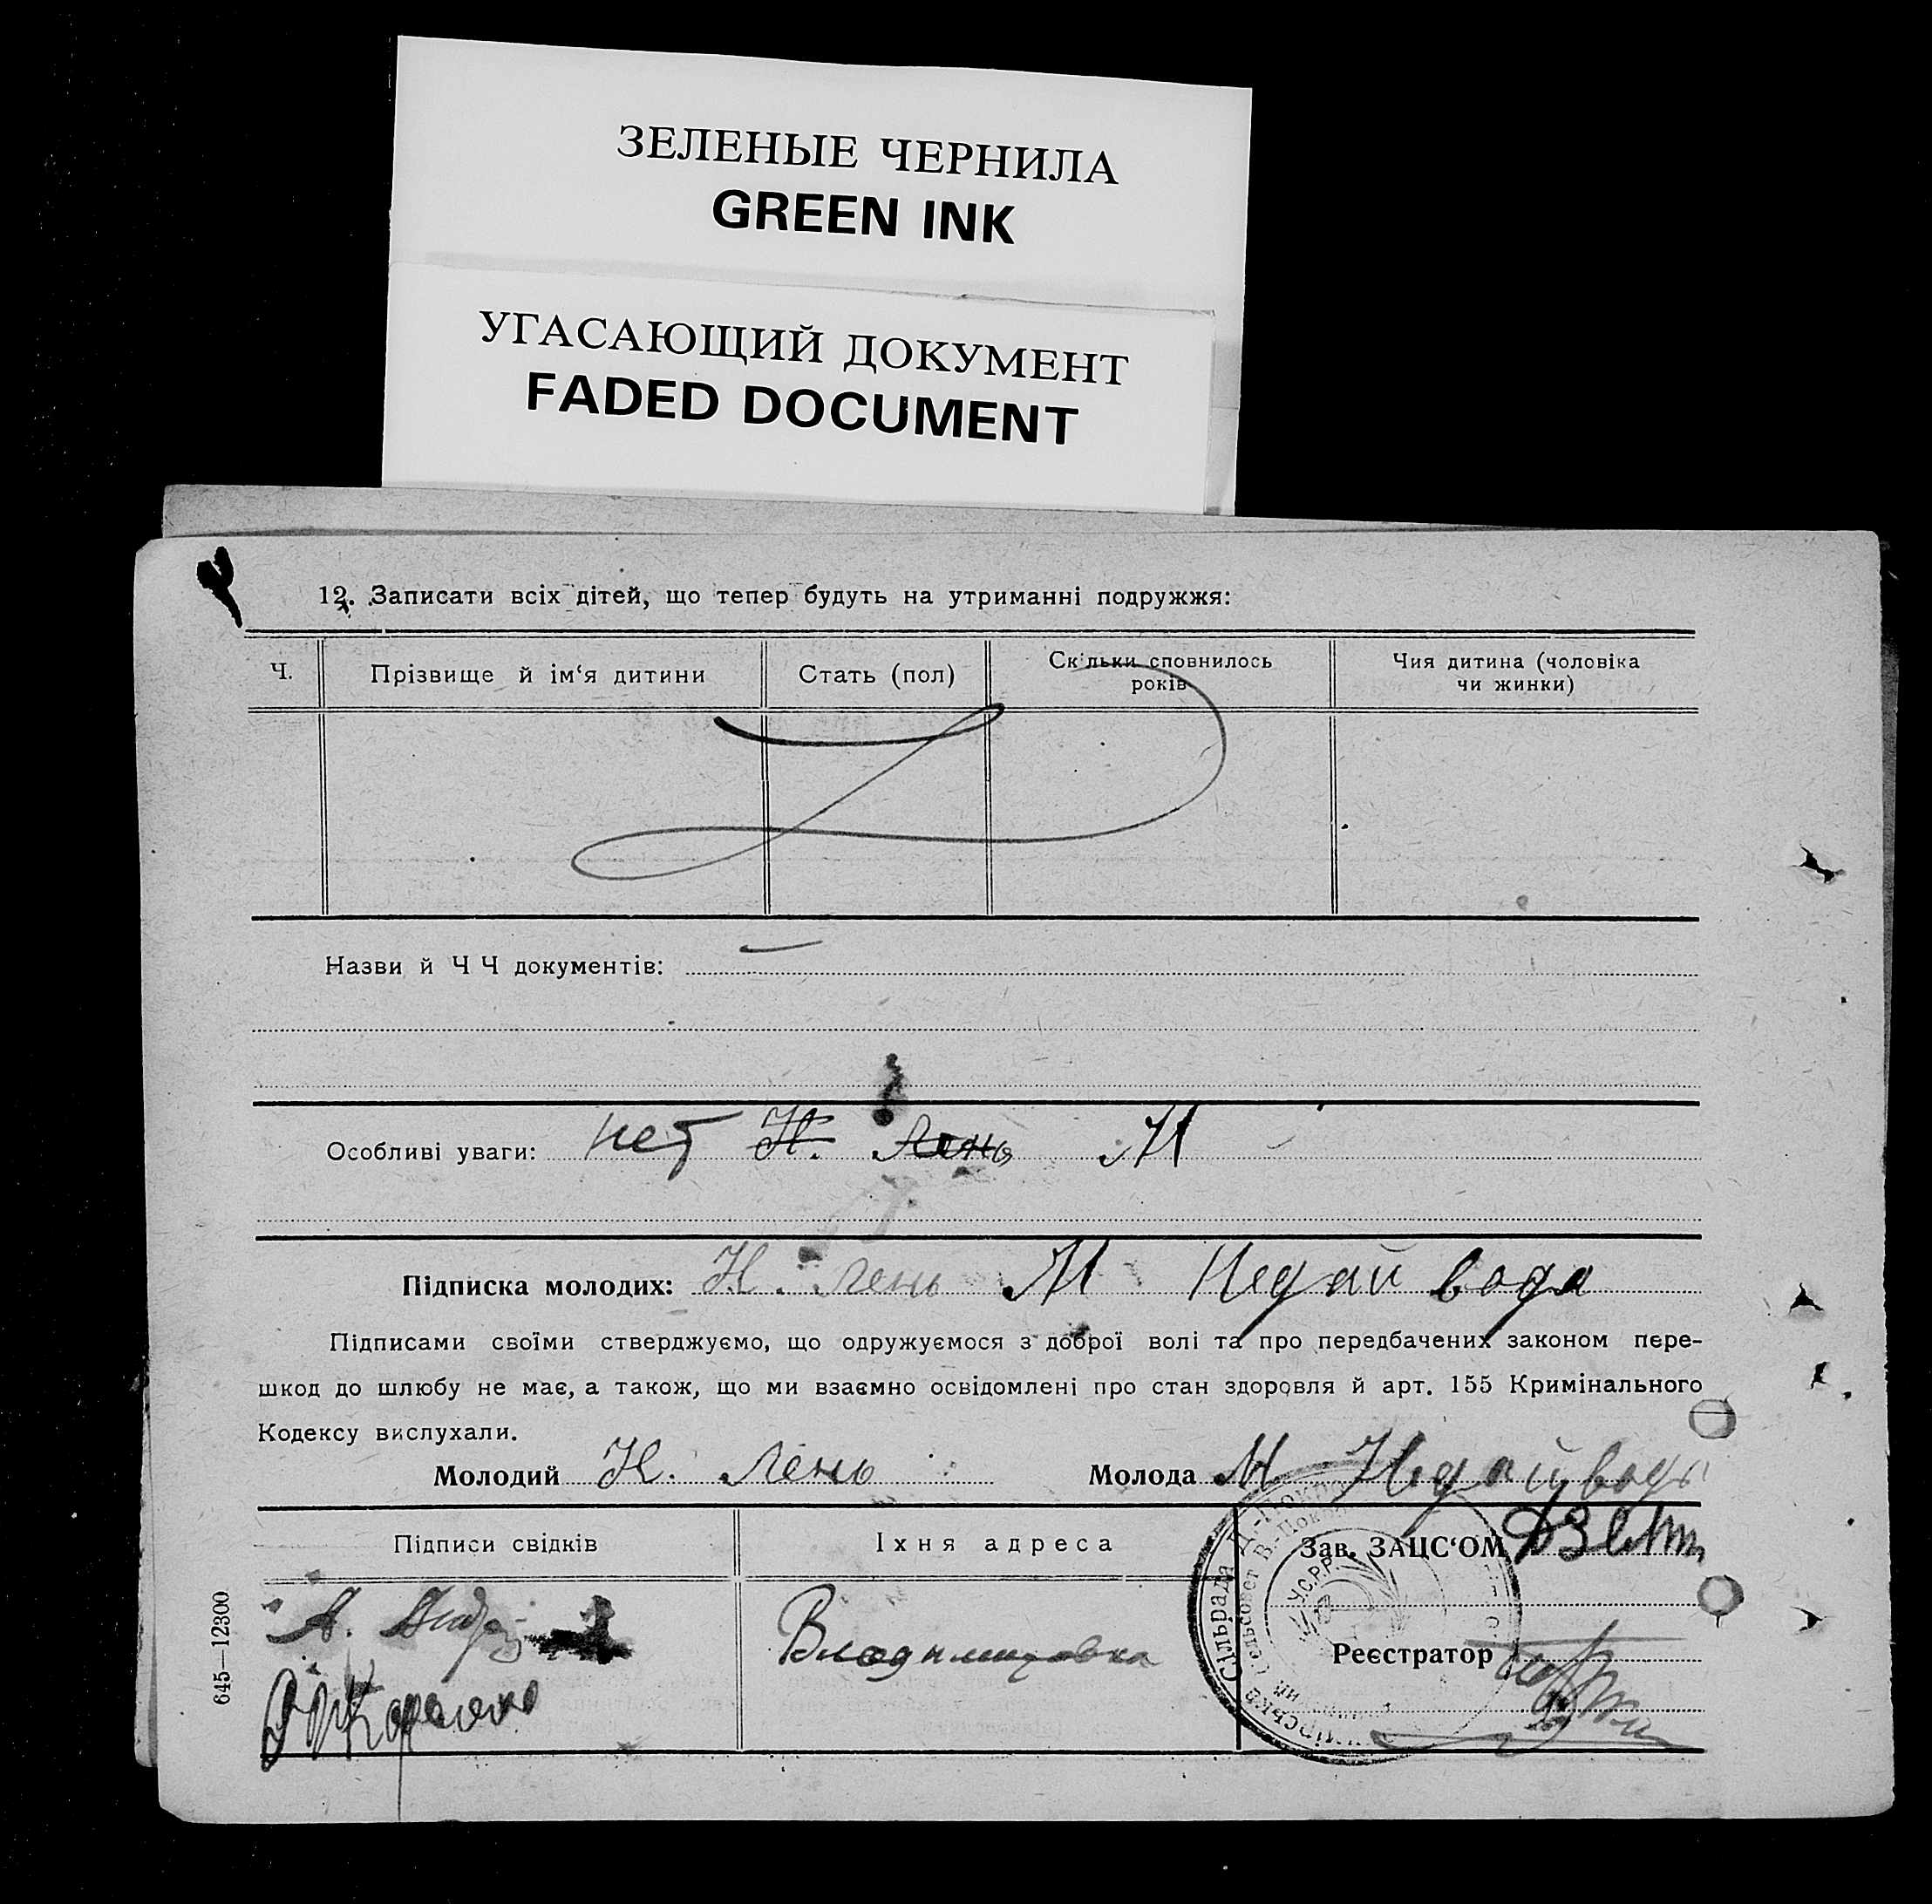 ЗЕЛЕНЫЕ ЧЕРНИЛА
GREEN INK
УГАСАЮЩИЙ ДОКУМЕНТ
FADED DOCUMENT
12. Записати всіх дітей, що тепер будуть на утриманні подружжя:
Ч. Прізвище й ім‘я дитини Стать (пол) Скільки сповнилось років Чия дитина (чоловіка чи жинки)
Назви й ЧЧ документів:
Особливі уваги: нет Н. Лень М
Підписка молодих: Н. Лень М Недайвода
Підписами своїми стверджуємо, що одружуємося з доброї волі та про передбачених законом пере-
шкод до шлюбу не має, а також, що ми взаємно освідомлені про стан здоровля й арт. 155 Кримінального
Кодексу вислухали.
Молодий Н. Лень Молода М. Недайвода
Підписи свідків Їхня адреса Зав. ЗАЦС‘ОМ
А.
Владимировка
Реєстратор
Сільрада
У.С.Р.Р.
645—12300